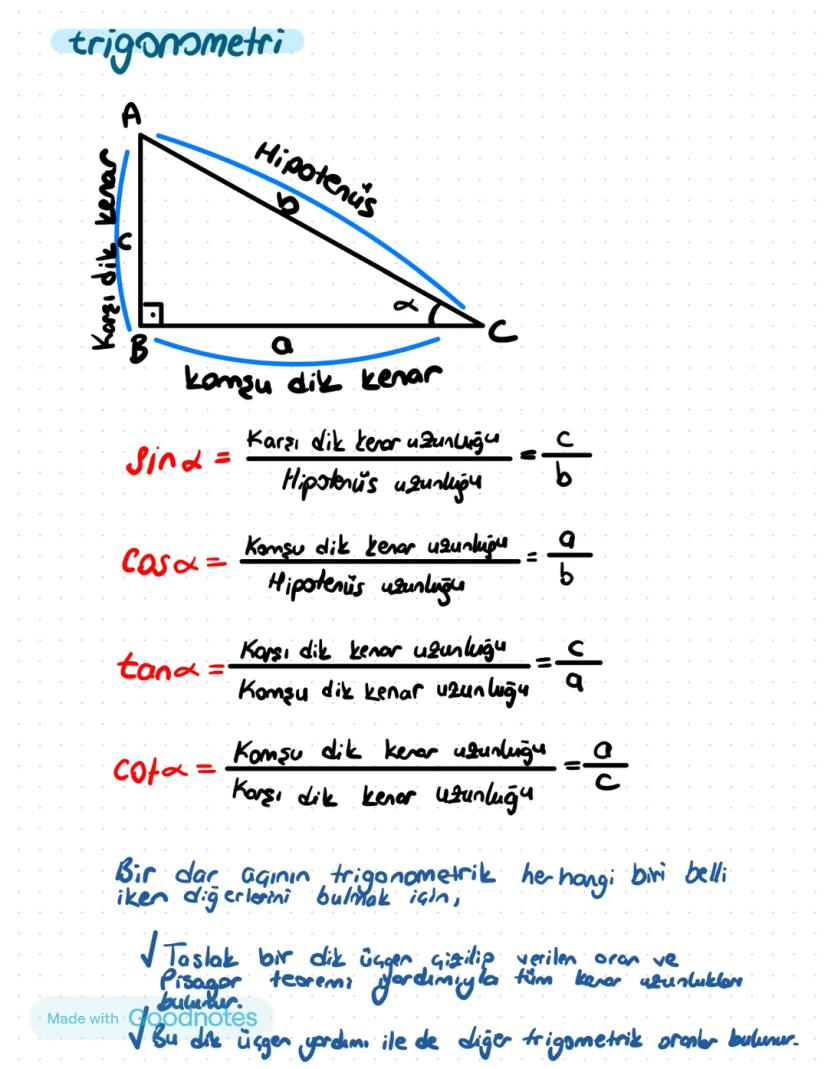 trigonometri
A
Hipotenüs
b
Karşı dik kenar
c
α
B
a
C
komşu dik kenar
sinα = Karşı dik kenar uzunluğu / Hipotenüs uzunluğu = c / b
cosα = Komşu dik kenar uzunluğu / Hipotenüs uzunluğu = a / b
tanα = Karşı dik kenar uzunluğu / Komşu dik kenar uzunluğu = c / a
cotα = Komşu dik kenar uzunluğu / Karşı dik kenar uzunluğu = a / c
Bir dar açının trigonometrik herhangi biri belli
iken diğerlerini bulmak için,
√ Taslak bir dik üçgen çizilip verilen oran ve
Pisagor teoremi yardımıyla tüm kenar uzunlukları
bulunur.
Made with Goodnotes
√ Bu dik üçgen yardımı ile de diğer trigometrik oranlar bulunur.